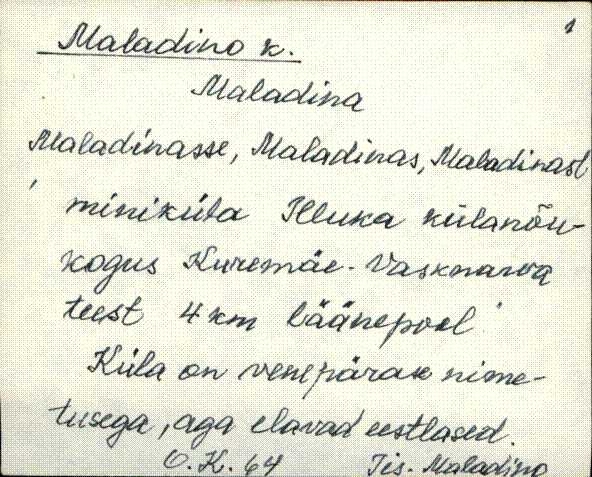 1
Maladino k.
Maladina
Maladinasse, Maladinas, Maladinast
miniküla Illuka külanõu-
kogus Kuremäe - Vasknarva
teest 4 km läänepool
Küla on venepärase nime-
tusega, aga elavad eestlased.
O.K. 64 Jis. Maladino